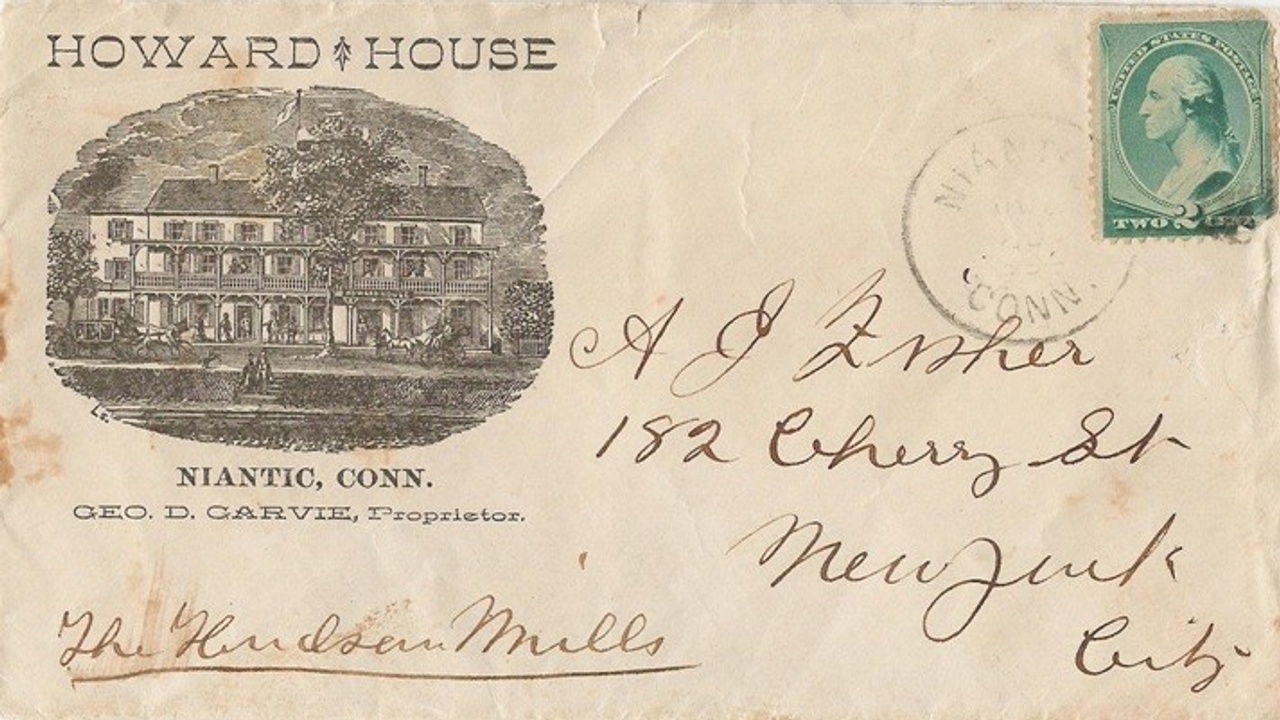 HOWARD HOUSE
NIANTIC, CONN.
GEO. D. GARVIE, Proprietor.
UNITED STATES POSTAGE
TWO 2
NIANT
CONN.
A J Fisher
182 Cherry St
New York
City
The Hudson Mills